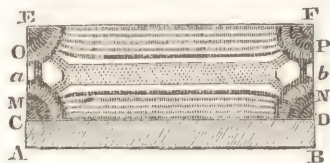 E F
O P
a b
M N
C D
A B